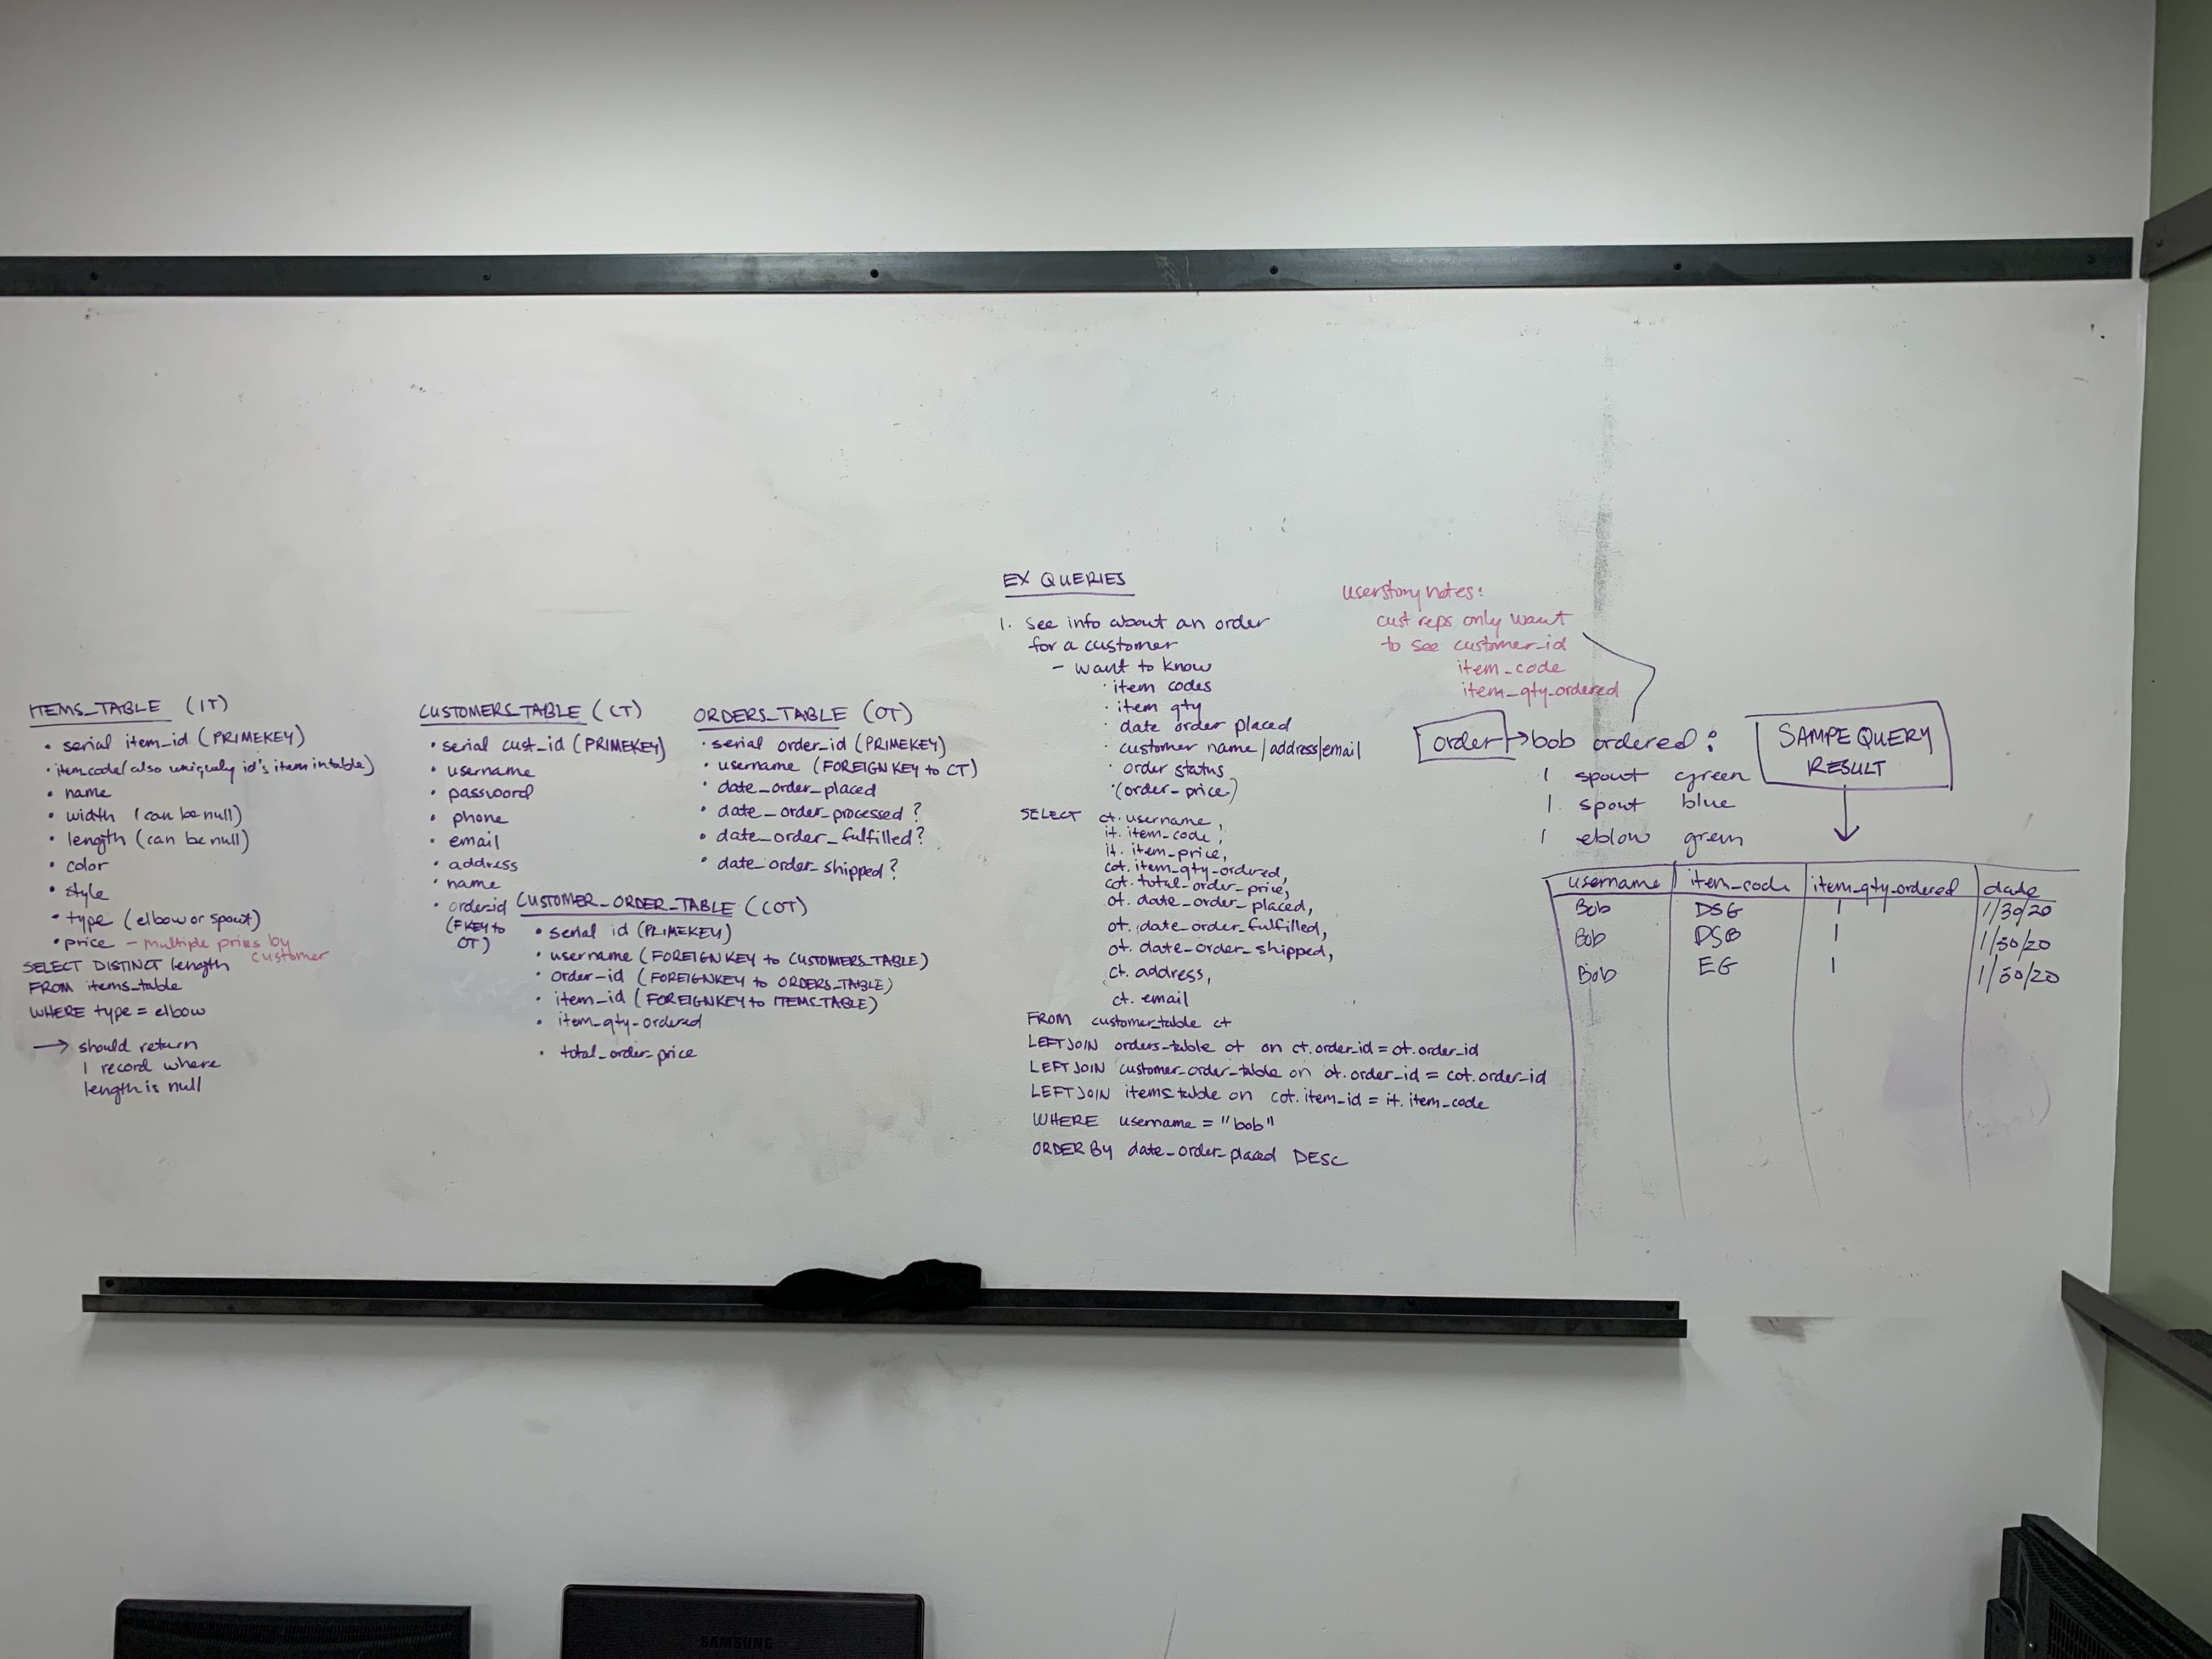 ITEMS_TABLE (IT)
• serial item_id (PRIMEKEY)
• item code (also uniquely id's item in table)
• name
• width (can be null)
• length (can be null)
• color
• style
• type (elbow or spout)
• price - multiple prices by customer
SELECT DISTINCT length
FROM items_table
WHERE type = elbow
→ should return
1 record where
length is null
CUSTOMERS_TABLE (CT)
• serial cust_id (PRIMEKEY)
• username
• password
• phone
• email
• address
• name
• orderid
(FKEY to
OT)
ORDERS_TABLE (OT)
• serial order_id (PRIMEKEY)
• username (FOREIGN KEY to CT)
• date_order_placed
• date_order_processed?
• date_order_fulfilled?
• date_order_shipped?
CUSTOMER_ORDER_TABLE (COT)
• serial id (PRIMEKEY)
• username (FOREIGNKEY to CUSTOMERS_TABLE)
• order_id (FOREIGNKEY to ORDERS_TABLE)
• item_id (FOREIGNKEY to ITEMS_TABLE)
• item_qty_ordered
• total_order_price
EX QUERIES
1. see info about an order
for a customer
- want to know
• item codes
• item qty
• date order placed
• customer name/address/email
• order status
• (order_price)
SELECT ct.username,
it.item_code,
it.item_price,
cot.item_qty_ordered,
cot.total_order_price,
ot.date_order_placed,
ot.date_order_fulfilled,
ot.date_order_shipped,
ct.address,
ct.email
FROM customer_table ct
LEFT JOIN orders_table ot on ct.order_id = ot.order_id
LEFT JOIN customer_order_table on ot.order_id = cot.order_id
LEFT JOIN items_table on cot.item_id = it.item_code
WHERE username = "bob"
ORDER BY date_order_placed DESC
userstory notes:
cust reps only want
to see customer_id
item_code
item_qty_ordered
order → bob ordered:
1 spout green
1 spout blue
1 eblow green
SAMPE QUERY
RESULT
username item_code item_qty_ordered date
Bob DSG 1 1/30/20
Bob DSB 1 1/30/20
Bob EG 1 1/30/20
SAMSUNG